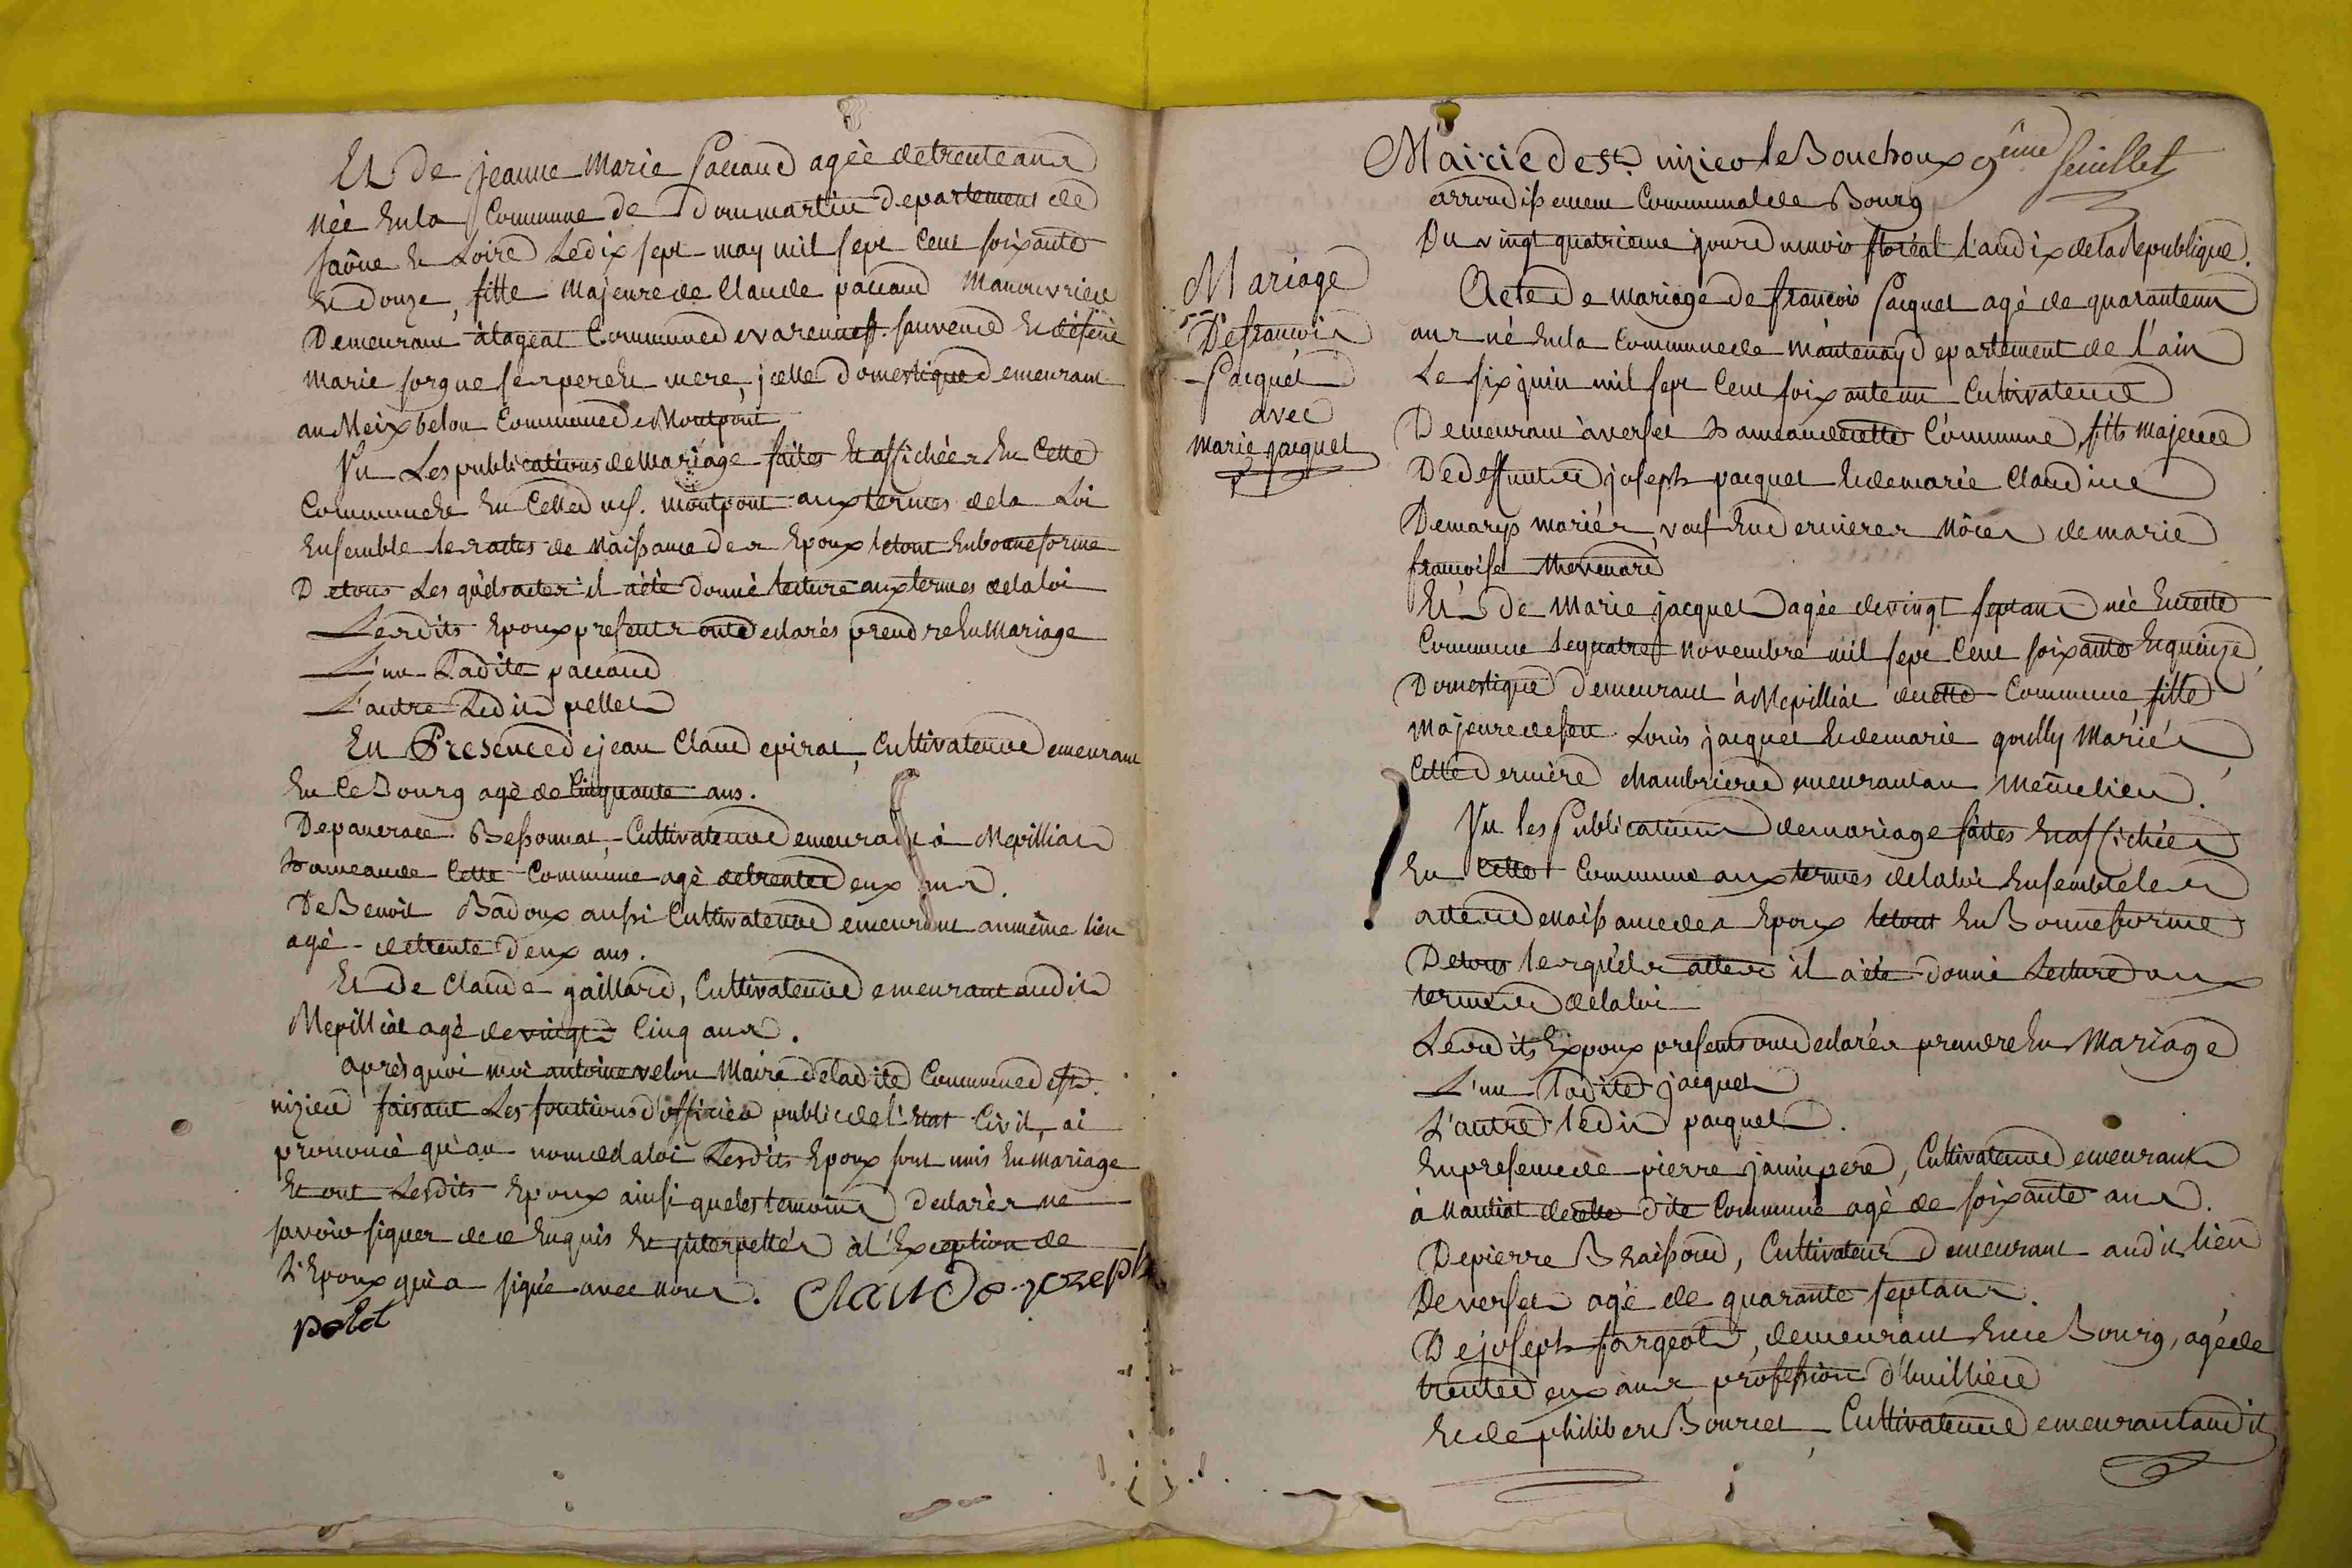 Et De jeanne Marie Paccaud agèe de trente ans
née En la Commune de Dommartin Departement de
saône Et Loire Le dix sept may mil sept Cent soixante
Et Douze, fille Majeure de Claude paccaud Manouvrier
Demeurant à tageat Commune de varennes st. sauveur Et défunte
Marie sorgue ses pere Et mere, jcelle Domestique Demeurant
au Meix belou Commune de Montpont
Vu Les publications de Mariage faites Et affichées En Cette
Commune Et En Celle de montpont aux termes de la Loi
Ensemble les actes de Naissance des Epoux le tout En bonne forme
De tous Les quels actes il a été donné lecture aux termes de la loi
Lesdits Epoux presents ont declarés prendre En Mariage
L'un Ladite paccaud
L'autre Ledit pellet
En Presence de jean Claude pirat, Cultivateur demeurant
En Ce Bourg agé de Cinquante ans.
De pancrace Bessonnat, Cultivateur demeurant à Mepilliat
hameau de Cette Commune agé de trente deux ans.
De Benoit Badoux aussi Cultivateur demeurant au même lieu
agé de trente deux ans.
Et De Claude gaillard, Cultivateur demeurant audit
Mepilliat agé de vingt Cinq ans.
après quoi moi antoine velon Maire de ladite Commune de st.
nizier faisant Les fonctions d'officier public de l'Etat Civil, ai
prononcé qu'au nom de la loi Lesdits Epoux sont unis En mariage
Et ont Lesdits Epoux ainsi que les temoins declarés ne
savoir signer de ce Enquis Et jnterpellés à l'Exception de
L'Epoux qui a signé avec nous. Claude jozeph
pelet
Mairie de st. nizier le Bouchoux 9eme feuillet
arrondissement Communal de Bourg
Du vingt quatrieme jour du mois floréal l'an dix de la Republique.
Mariage
De francois
Pacquet
avec
Marie jacquet
Acte De mariage de francois Pacquet agé de quarante un
ans né En la Commune de mantenay departement de l'ain
Le six juin mil sept Cent soixante un Cultivateur
Demeurant à verset hameau de cette Commune, fils majeur
De deffunt joseph pacquet Et de marie Claudine
Demarys mariés, veuf En dernieres Nôces de marie
francoise thevenard
Et De Marie jacquet agée de vingt sept ans née En cette
Commune le quatre novembre mil sept Cent soixante Et quinze,
Domestique demeurant à Mepilliat de cette Commune fille
majeure de feu Louis jacquet Et de marie goully Mariés
Cette derniere Chambriere demeurant au même lieu.
Vu les Publications de mariage faites Et affichées
En Cette Commune aux termes de la loi Ensemble les
actes de Naissance des Epoux le tout En Bonne forme
De tous lesquels actes il a été donné Lecture aux
termes de la loi
Lesdits Epoux presents ont declarés prendre En Mariage
L'un Ladite jacquet
L'autre ledit pacquet.
En presence de pierre janin pere, Cultivateur demeurant
à Nantiat de cette dite Commune agé de soixante ans.
De pierre Braissoud, Cultivateur Demeurant audit lieu
De verset agé de quarante sept ans.
De joseph fargeot, demeurant En ce Bourg, agé de
trente deux ans profession d'huillier
Et de philibert Bourcet, Cultivateur demeurant audit